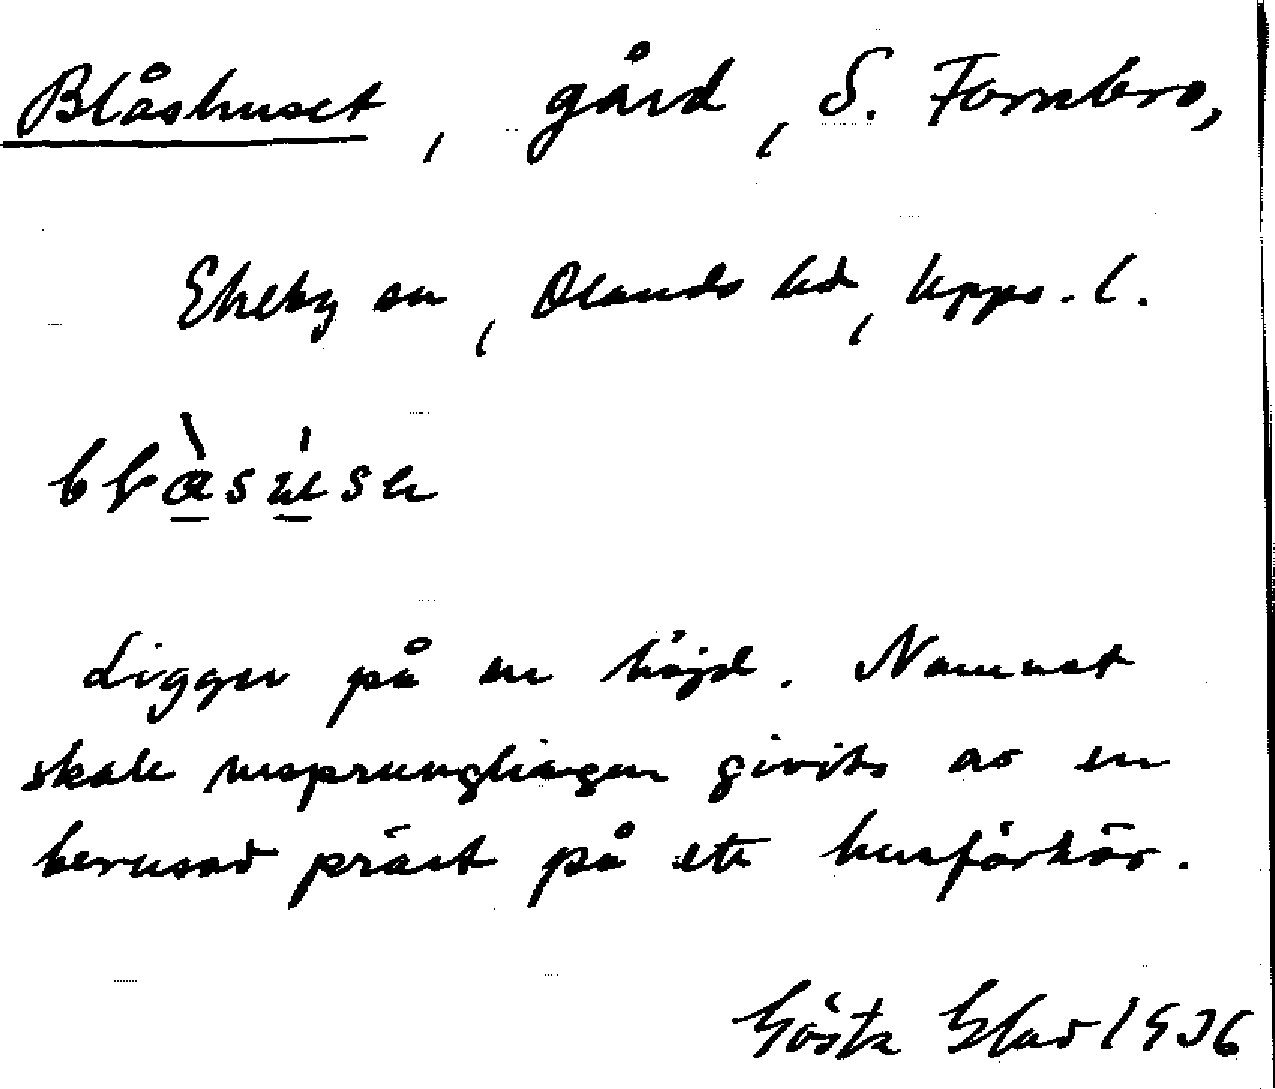 Blåshuset, gård, S. Fornbro,
Ekeby sn, Olands hd, Upps. l.
Ligger på en höjd. Namnet
skall ursprungligen givits av en
berusad präst på ett husförhör.
Gösta Blad 1936